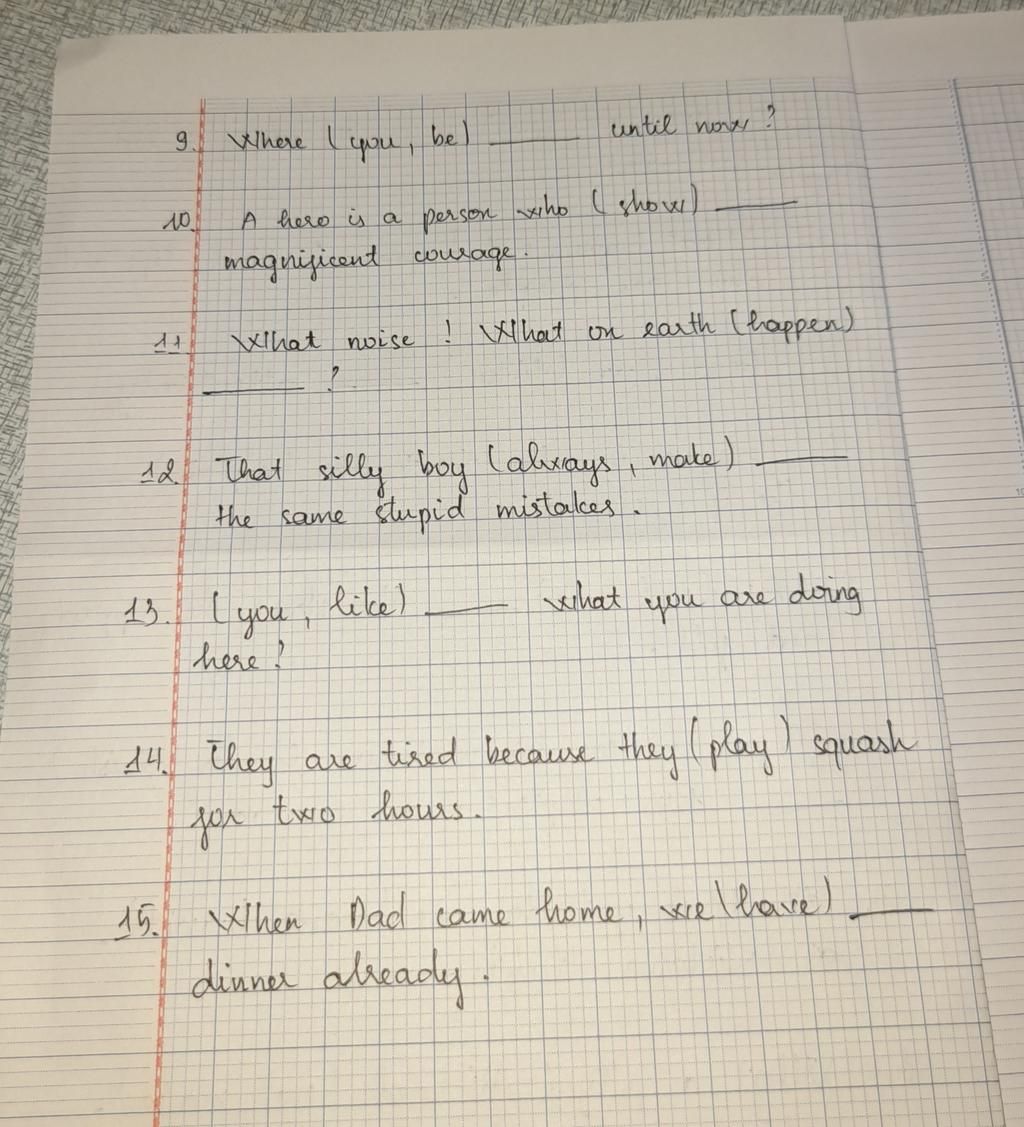 9. Where (you, be) ______ until now?
10. A hero is a person who (show) ______
magnificent courage.
11. What noise! What on earth (happen)
______ ?
12. That silly boy (always, make) ______
the same stupid mistakes.
13. (you, like) ______ what you are doing
here?
14. They are tired because they (play) squash
for two hours.
15. When Dad came home, we (have) ______
dinner already.